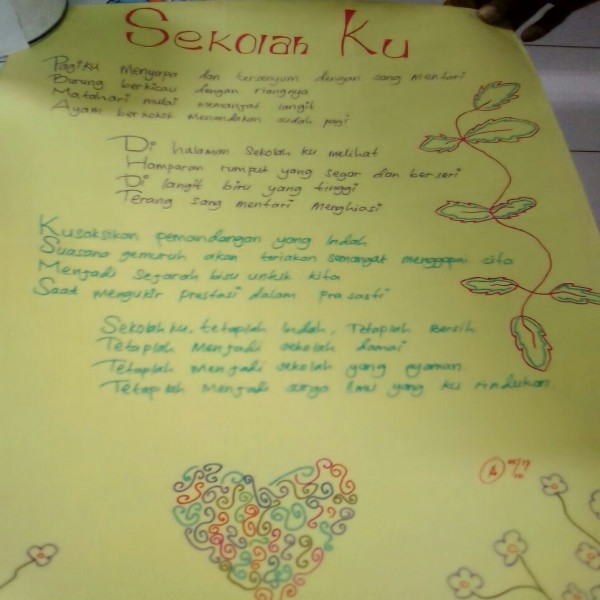 Sekolah Ku
Pagiku menyapa dan tersenyum dengan sang mentari
Burung berkicau dengan riangnya
Matahari mulai memanjat langit
Ayam berkokok menandakan sudah pagi
Di halaman sekolah ku melihat
Hamparan rumput yang segar dan berseri
Di langit biru yang tinggi
Terang sang mentari Menghiasi
Kusaksikan pemandangan yang Indah
Suasana gemuruh akan teriakan semangat menggapai cita
Menjadi Sejarah bisu untuk kita
Saat mengukir prestasi dalam prasasti
Sekolah ku, tetaplah Indah, Tetaplah Bersih
Tetaplah Menjadi sekolah damai
Tetaplah menjadi sekolah yang nyaman
Tetaplah Menjadi surga Ilmu yang ku rindukan
A